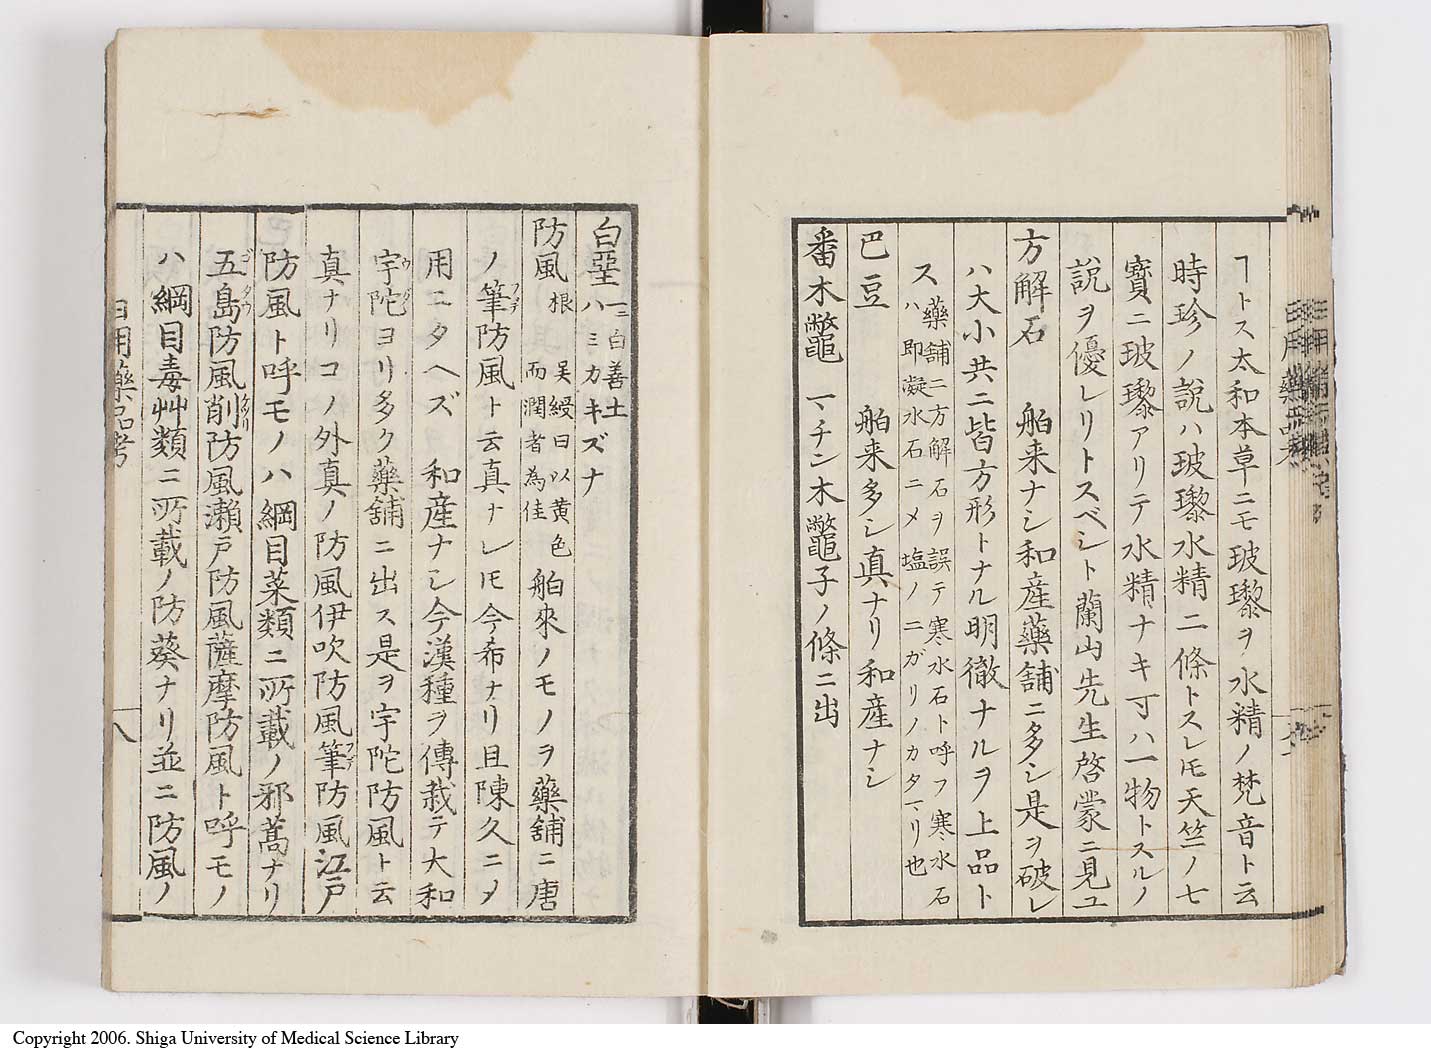 ヿトス太和本草ニモ玻瓈ヲ水精ノ梵音ト云
時珍ノ説ハ玻瓈水精二條トスレ𪜈天竺ノ七
寶ニ玻瓈アリテ水精ナキ寸ハ一物トスルノ
説ヲ優レリトスベシト蘭山先生啓蒙ニ見ユ
方解石 舶来ナシ和産薬舗ニ多シ是ヲ破レ
ハ大小共ニ皆方形トナル明徹ナルヲ上品ト
ス 藥舗ニ方解石ヲ誤テ寒水石ト呼フ寒水石
ハ即凝水石ニ〆塩ノニガリノカタマリ也
巴豆 舶来多シ真ナリ和産ナシ
番木鼈 マチン木鼈子ノ條ニ出
白堊 一ニ白善土
ハミカキズナ
防風 根 呉綬曰以黄色
而潤者為佳 舶來ノモノヲ藥舗ニ唐
ノ筆防風ト云真ナレ𪜈今希ナリ且陳久ニ〆
フデ
用ニタヘズ 和産ナシ今漢種ヲ傳栽テ大和
宇陀ヨリ多ク藥舗ニ出ス是ヲ宇陀防風ト云
ウダ
真ナリコノ外真ノ防風伊吹防風筆防風江戸
フデ
防風ト呼モノハ綱目菜類ニ所載ノ邪蒿ナリ
五島防風削防風瀬戸防風薩摩防風ト呼モノ
ゴタウ
ケヅリ
ハ綱目毒艸類ニ所載ノ防葵ナリ並ニ防風ノ
日用藥品考
八
Copyright 2006. Shiga University of Medical Science Library